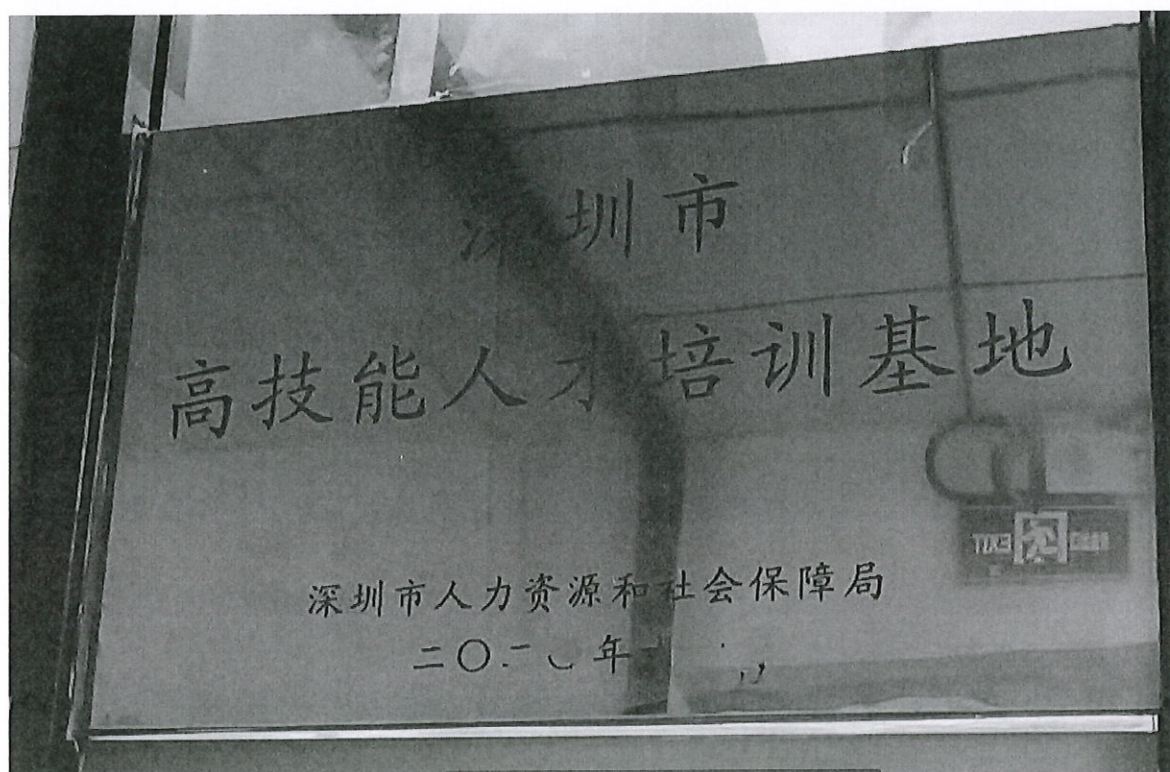 深圳市
高技能人才培训基地
深圳市人力资源和社会保障局
二〇二〇年
EXIT